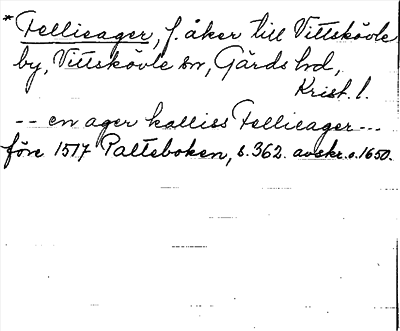 * Fellieager, f. åker till Vittskövle
by, Vittskövle sn, Gärds hd,
Krist. l.
-- en ager kalliss Fellieager ---
före 1517 Palteboken, s. 362. avskr. o. 1650.